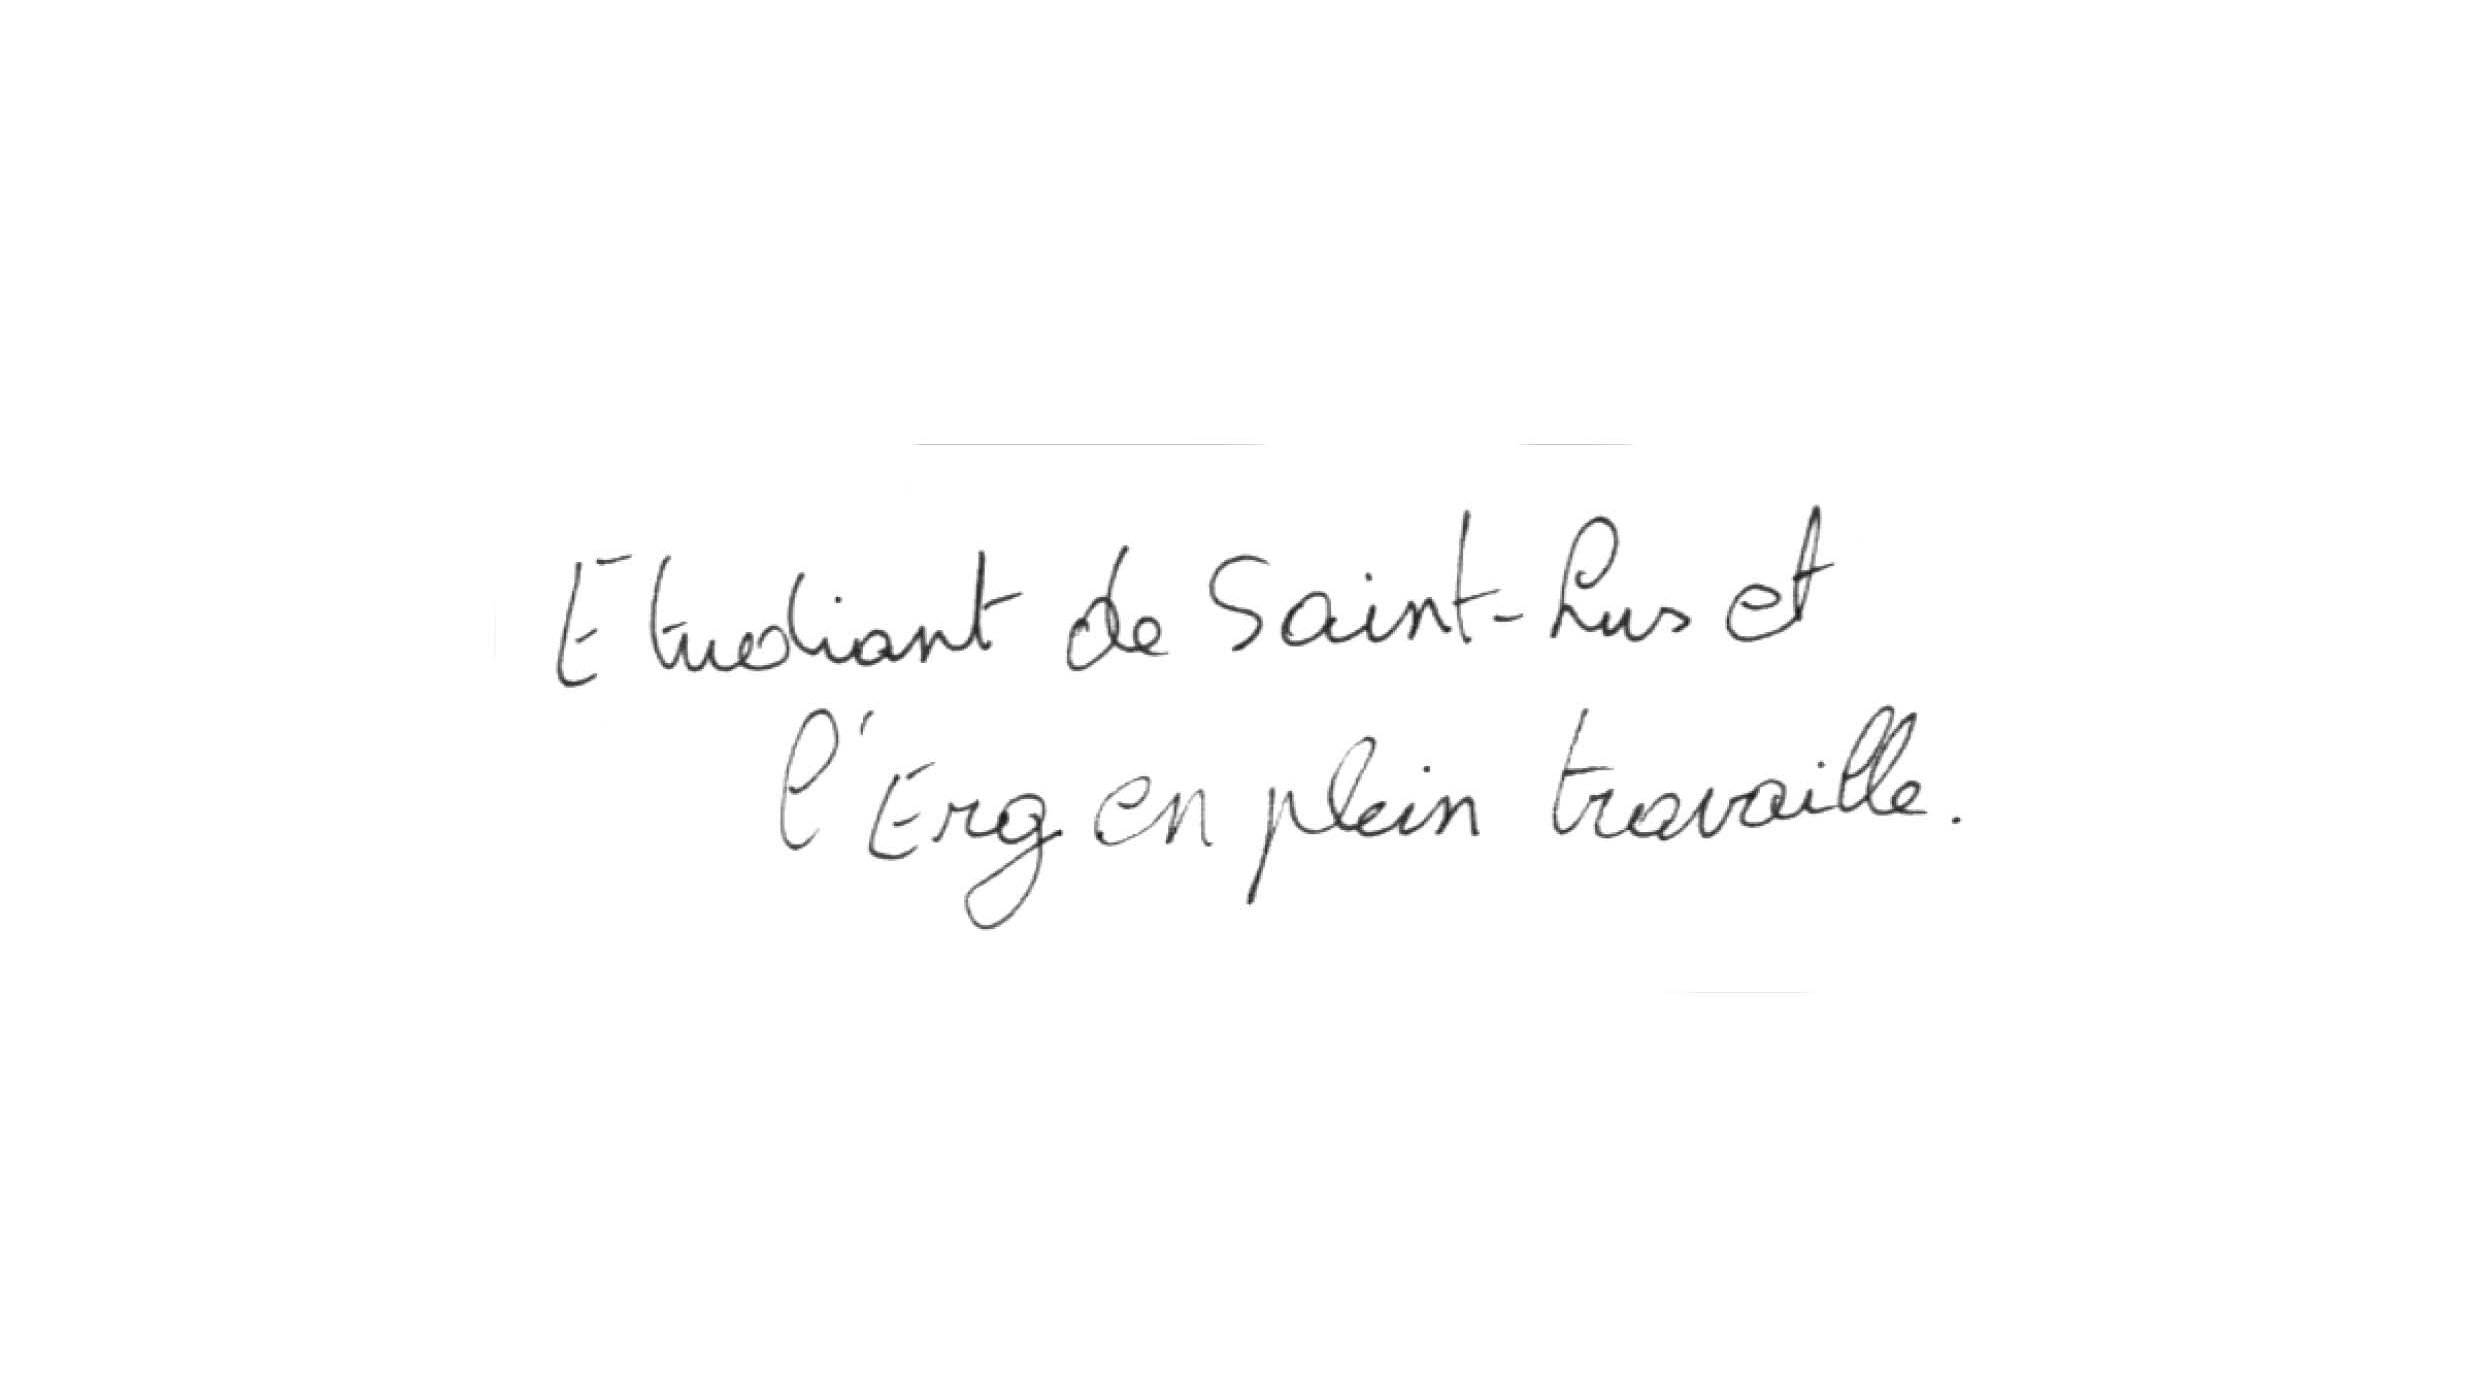 Etudiant de Saint-Lus et
l'Erg en plein travaille.